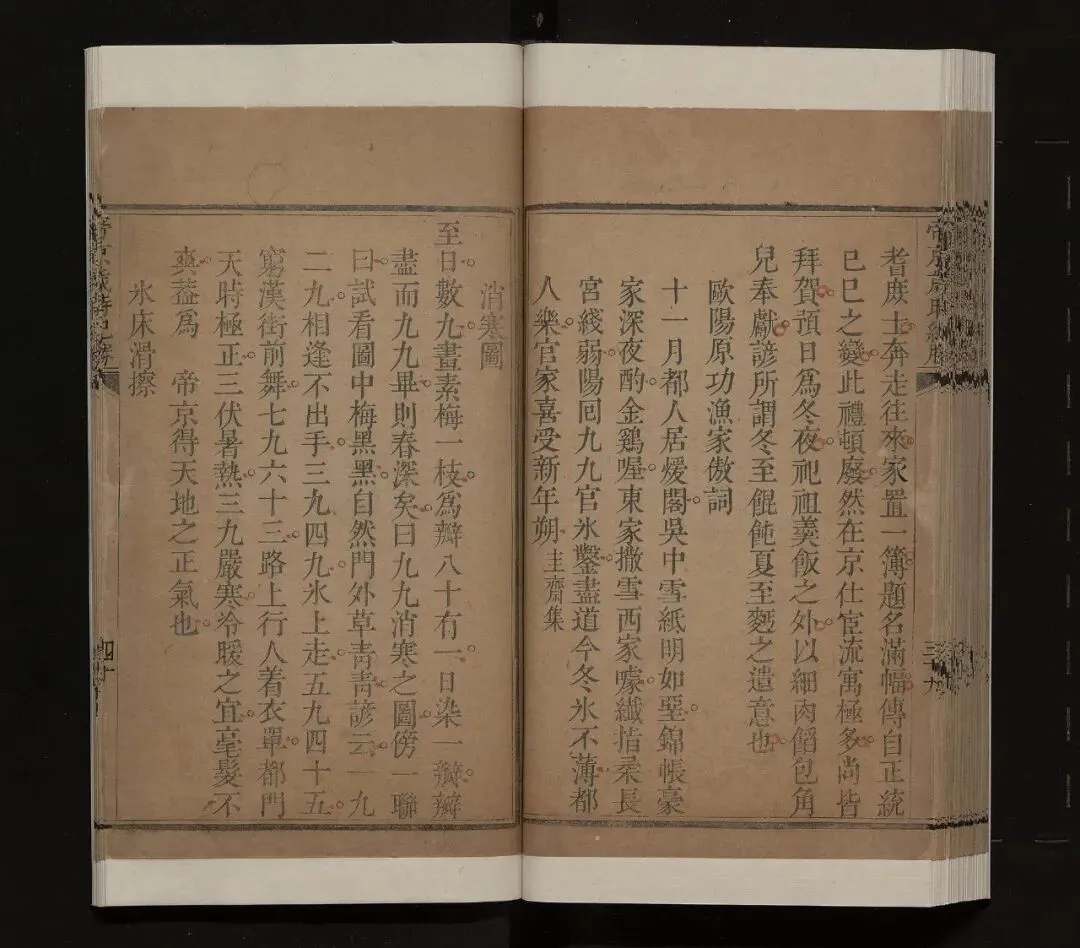 耆庶士奔走往來家置一簿題名滿幅傳自正統
己巳之變此禮頓廢然在京仕宦流寓極多尚皆
拜賀預日爲冬夜祀祖羹飯之外以細肉餡包角
兒奉獻諺所謂冬至餛飩夏至麫之遺意也
歐陽原功漁家傲詞
十一月都人居煖閣吳中雪紙明如堊錦帳豪
家深夜酌金鷄喔東家撒雪西家噱纖指柔長
宮綫弱陽囘九九官氷鑿盡道今冬氷不薄都
人樂官家喜受新年朔 圭齋集
消寒圖
至日數九畫素梅一枝爲瓣八十有一日染一瓣瓣
盡而九九畢則春深矣曰九九消寒之圖傍一聯
曰試看圖中梅黑黑自然門外草青青諺云一九
二九相逢不出手三九四九氷上走五九四十五
窮漢街前舞七九六十三路上行人着衣單都門
天時極正三伏暑熱三九嚴寒冷暖之宜毫髮不
爽葢爲 帝京得天地之正氣也
氷床滑擦